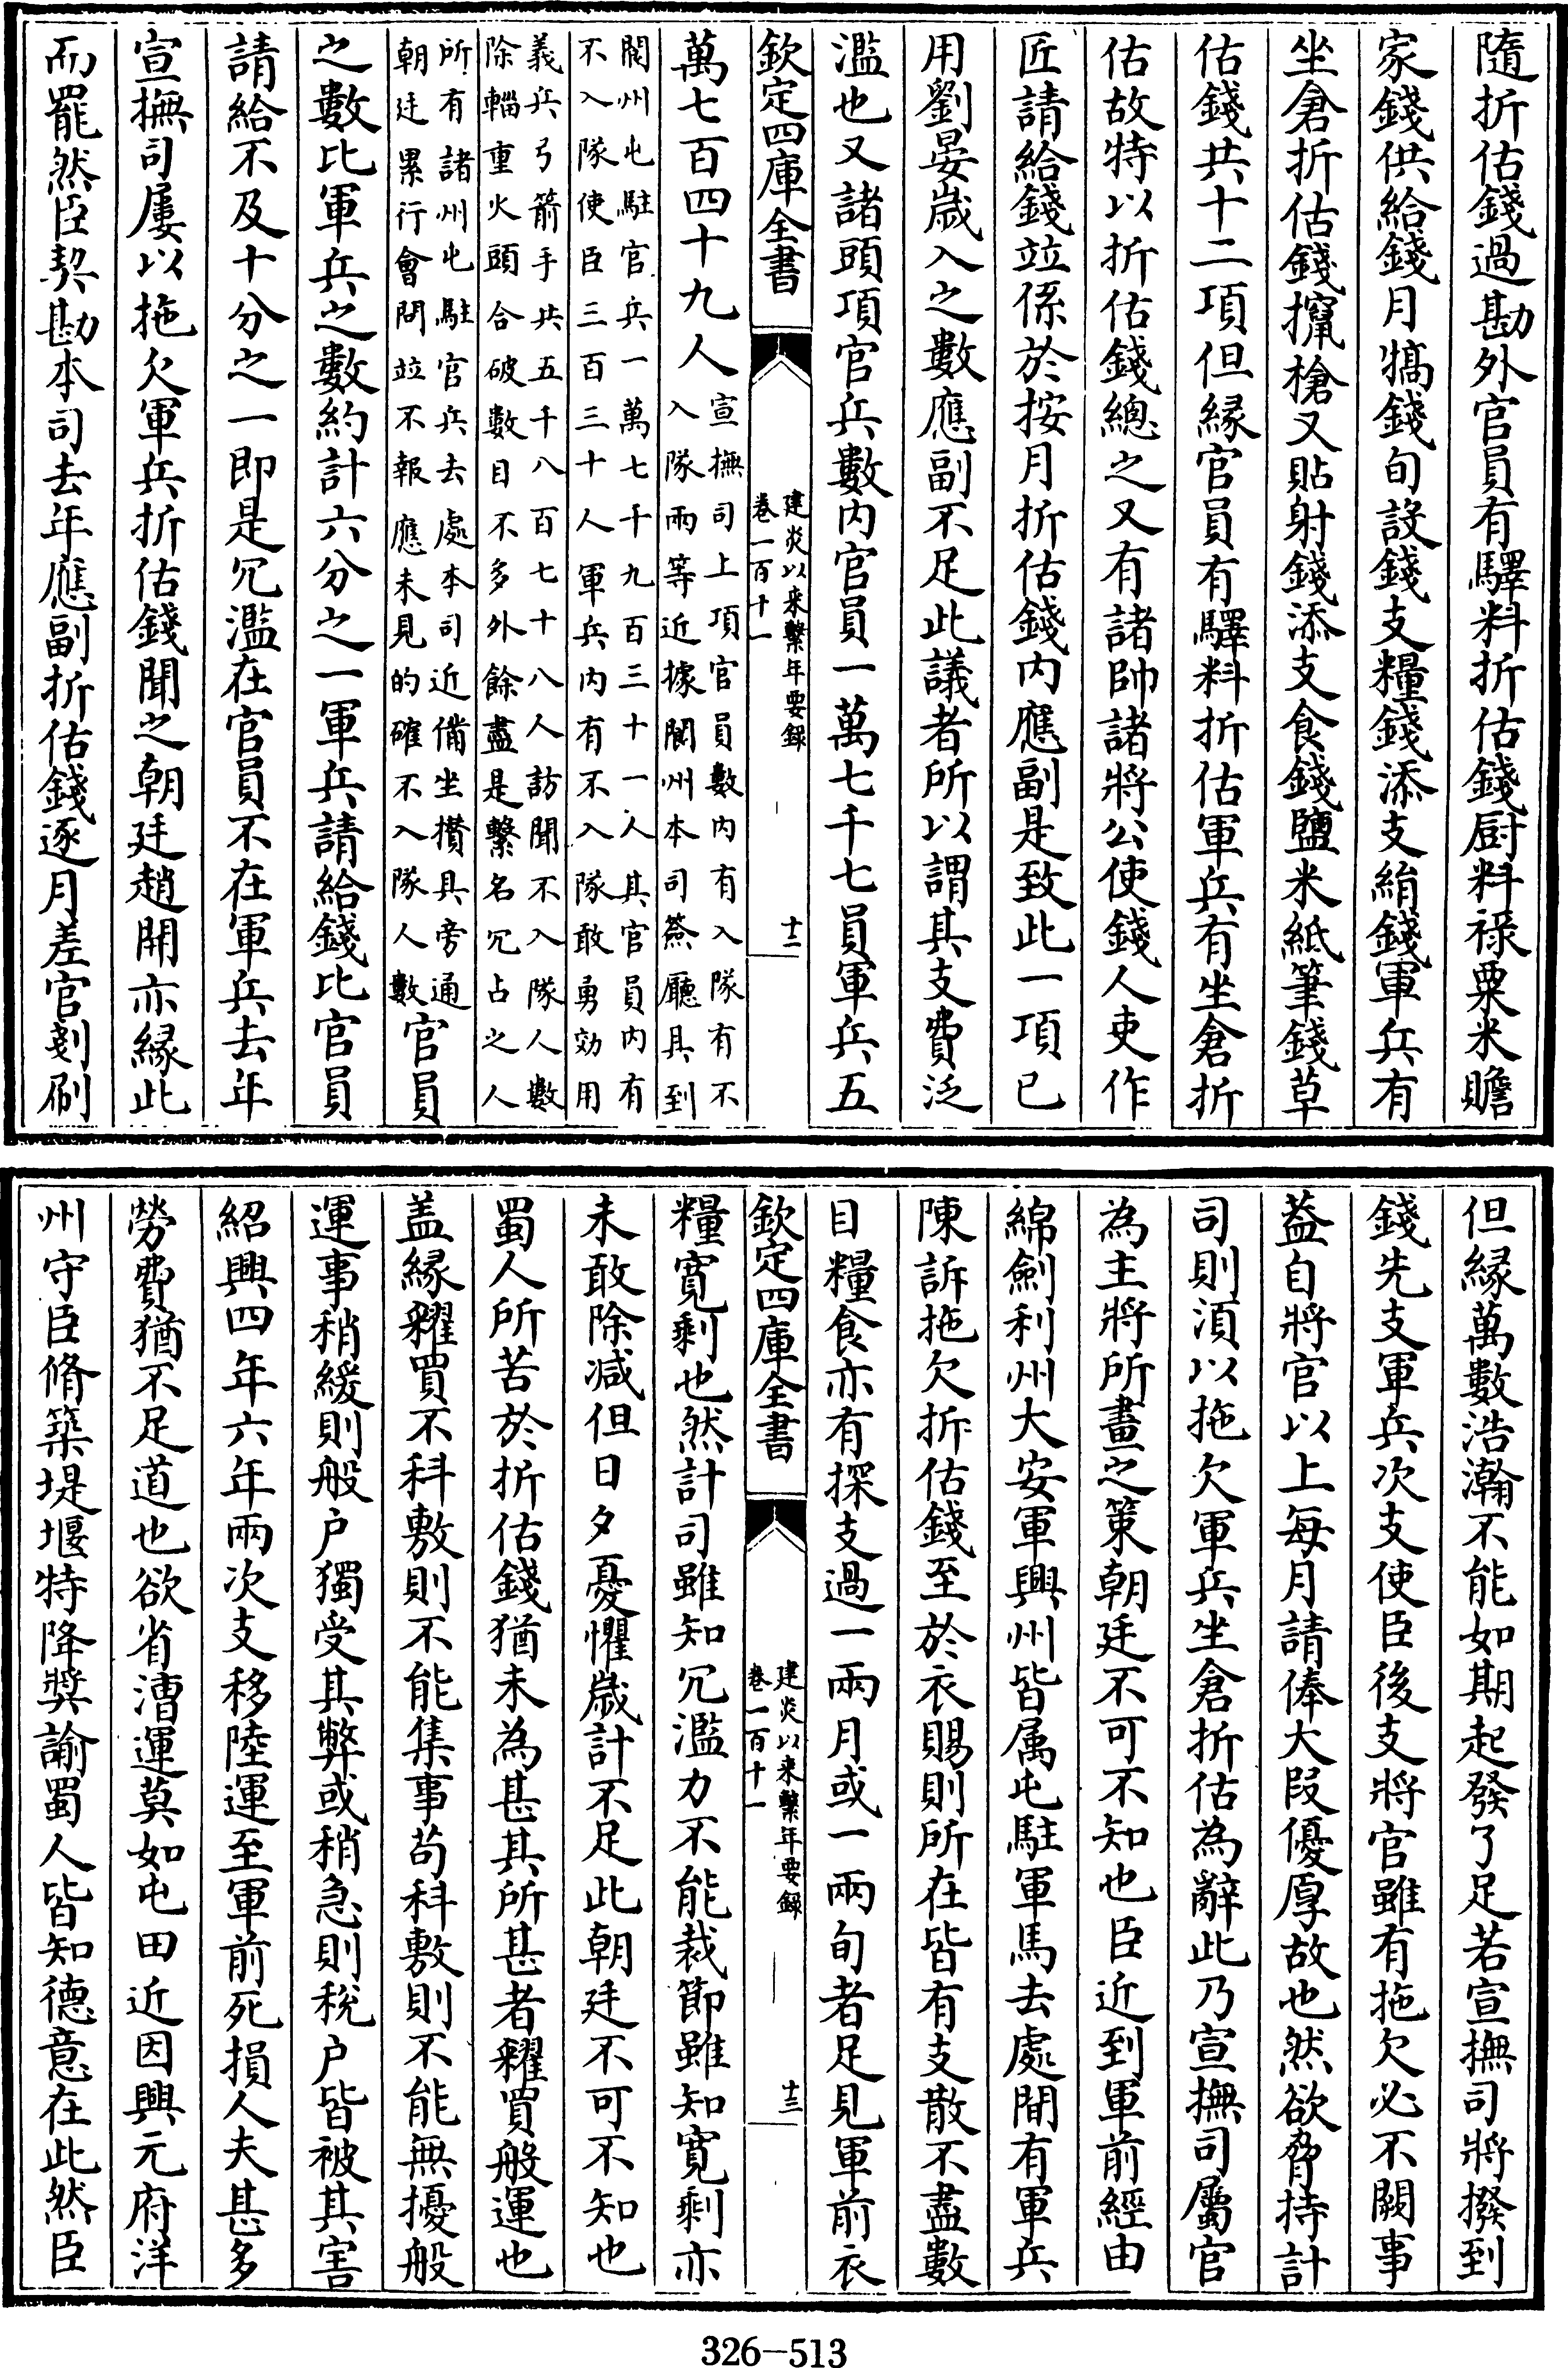 隨折估錢過勘外官員有驛料折估錢厨料祿粟米贍
家錢供給錢月犒錢旬設錢支糧錢添支絹錢軍兵有
坐倉折估錢攛槍又貼射錢添支食錢鹽米紙筆錢草
估錢共十二項但縁官員有驛料折估軍兵有坐倉折
估故特以折估錢總之又有諸帥諸將公使錢人吏作
匠請給錢竝係於按月折估錢内應副是致此一項已
用劉晏歲入之數應副不足此議者所以謂其支費泛
濫也又諸頭項官兵數内官員一萬七千七員軍兵五
欽定四庫全書
建炎以来繫年要錄
卷一百十一
十二
萬七百四十九人宣撫司上項官員數内有入隊有不
入隊兩等近據閬州本司簽廳具到
閬州屯駐官兵一萬七千九百三十一人其官員内有
不入隊使臣三百三十人軍兵内有不入隊敢勇効用
義兵弓箭手共五千八百七十八人訪聞不入隊人數
除輜重火頭合破數目不多外餘盡是繫名冗占之人
所有諸州屯駐官兵去處本司近備坐攅具旁通
朝廷累行會問竝不報應未見的確不入隊人數官員
之數比軍兵之數約計六分之一軍兵請給錢比官員
請給不及十分之一即是冗濫在官員不在軍兵去年
宣撫司屢以拖欠軍兵折估錢聞之朝廷趙開亦緣此
而罷然臣契勘本司去年應副折估錢逐月差官剗刷
但緣萬數浩瀚不能如期起發了足若宣撫司將撥到
錢先支軍兵次支使臣後支將官雖有拖欠必不闕事
葢自將官以上每月請俸大段優厚故也然欲脅持計
司則須以拖欠軍兵坐倉折估為辭此乃宣撫司屬官
為主將所畫之策朝廷不可不知也臣近到軍前經由
綿劍利州大安軍興州皆属屯駐軍馬去處閒有軍兵
陳訴拖欠折估錢至於衣賜則所在皆有支散不盡數
目糧食亦有探支過一兩月或一兩旬者足見軍前衣
欽定四庫全書
建炎以来繫年要錄
卷一百十一
十三
糧寛剩也然計司雖知冗濫力不能裁節雖知寛剩亦
未敢除減但日夕憂懼歲計不足此朝廷不可不知也
蜀人所苦於折估錢猶未為甚其所甚者糴買般運也
盖緣糴買不科敷則不能集事苟科敷則不能無擾般
運事稍緩則般户獨受其弊或稍急則稅户皆被其害
紹興四年六年兩次支移陸運至軍前死損人夫甚多
勞費猶不足道也欲省漕運莫如屯田近因興元府洋
州守臣脩築堤堰特降奬諭蜀人皆知德意在此然臣
326-513